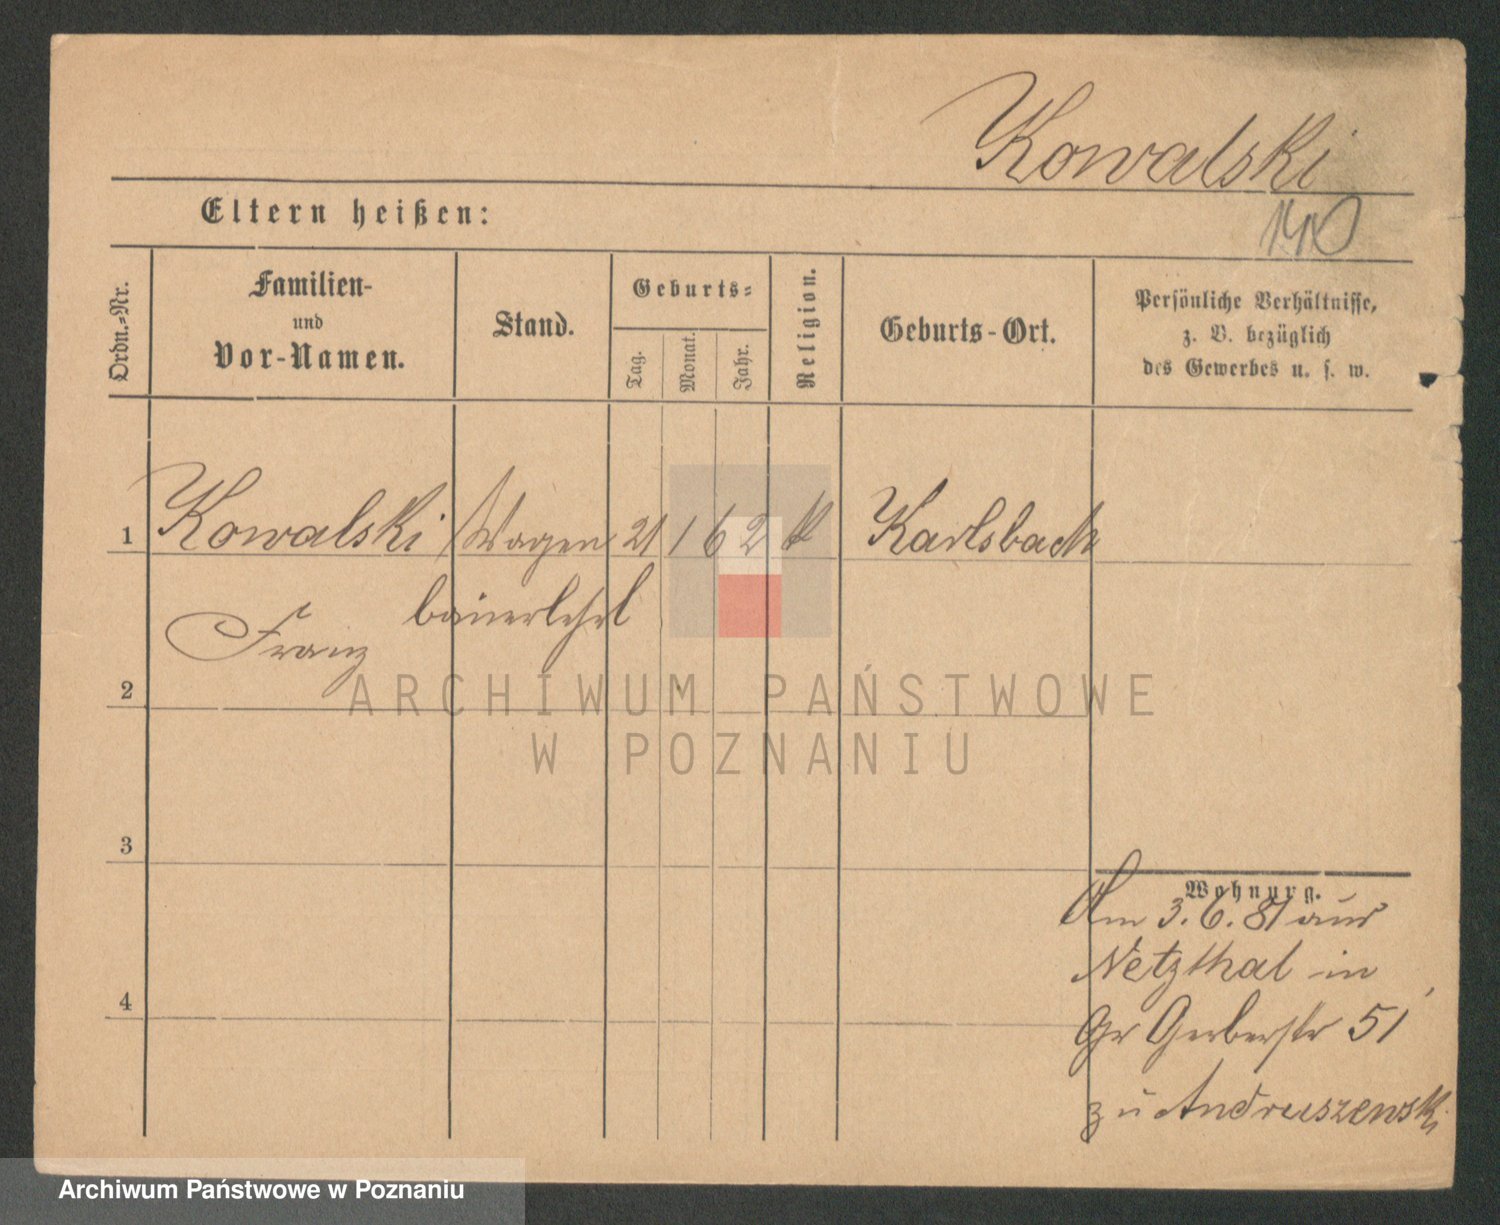 Kowalski
Eltern heißen:
140
Ordn.-Nr.
Familien-
und
Vor-Namen.
Stand.
Geburts-
Tag.
Monat.
Jahr.
Religion.
Geburts-Ort.
Persönliche Verhältnisse,
z. B. bezüglich
des Gewerbes u. s. w.
1 Kowalski Wagen 21 1 62 k Karlsbach
bauerlehrl
Franz
2
ARCHIWUM PAŃSTWOWE
W POZNANIU
3
Wohnung.
Am 3.6.81 aus
Netzthal in
4
Gr Gerberstr 51
zu Andruszewski
Archiwum Państwowe w Poznaniu